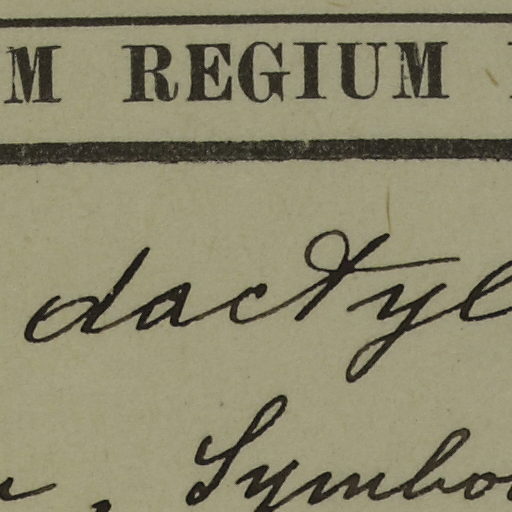 M REGIUM
dactyl
, Symbo